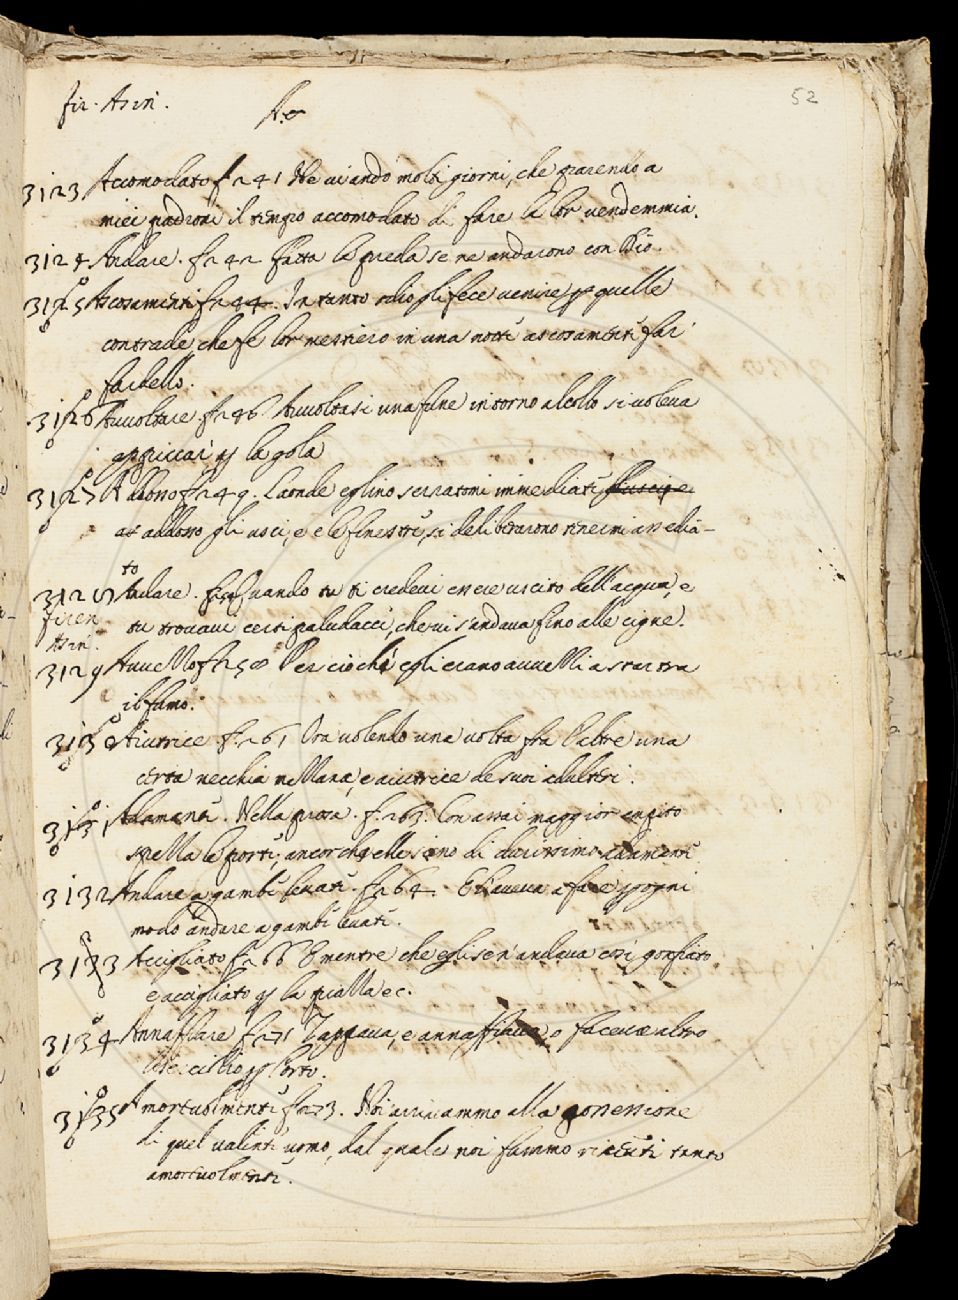 fir. Asin.
52
3123 Accomodato f. 241 Ne ai andò molti giorni, che parendo a
miei padroni il tempo accomodato di fare la lor vendemmia.
3124 Andare. f. 242 Fatta la preda se ne andarono con Dio.
3125 Ascosamenti f. 244. In tanto odio gli fece venire p quelle
contrade che fe lor mestiero in una notti ascosamenti far
fardello.
3126 Avvoltare. f. 246 Avvoltasi una fune intorno al collo si voleva
appiccar p la gola
3127 Addosso f. 249. Laonde eglino serratomi immediati
addosso gli usci, e le finestre, si deliberarono tenermi assedia-
to
3128 Andare. Quando tu ti credevi essere uscito dell'acqua, e
firen
Asin.
tu trovavi certi paludacci, che vi s'andava fino alle cigne.
3129 Avvezzo f. 258 Perciochè egli erano avvezzi a star tra
il fumo.
3130 Aiutrice f. 261 Ora volendo una volta fra l'altre una
certa vecchia ruffiana, e aiutrice de suoi adulteri.
3131 Adamanti. Nella prosa. f. 263. Con assai maggior empito
spezza le porti, ancorchè elle sieno di durissimo adamanti
3132 Andare a gambi levati. f. 264. E l'aveva a fare p ogni
modo andare a gambi levati.
3133 Accigliato f. 266 E mentre che egli se n'andava così gonfiato
e accigliato p la piazza ec.
3134 Annaffiare f. 271 Zappava, e annaffiava, o faceva altro
p l'orto.
3135 Amorevolmenti f. 273. Noi arrivammo alla possessione
di quel valenti uomo, dal quale noi fummo ricevuti tanto
amorevolmenti.